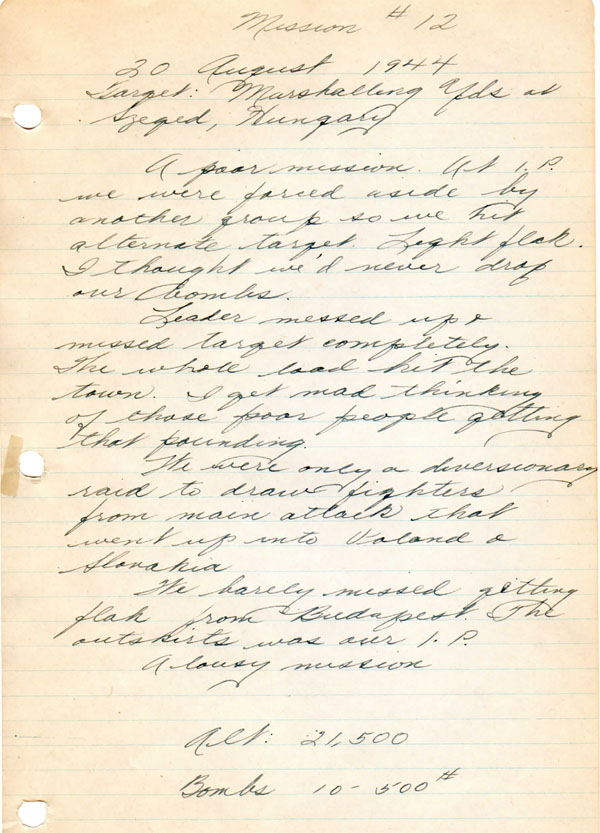 Mission # 12
20 August 1944
Target: Marshalling Yds at
Szeged, Hungary
A poor mission. At I.P.
we were forced aside by
another group so we hit
alternate target. Light flak.
I thought we'd never drop
our bombs.
Leader messed up &
missed target completely.
The whole load hit the
town. I get mad thinking
of those poor people getting
that pounding.
We were only a diversionary
raid to draw fighters
from main attack that
went up into Poland &
Slovakia
We barely missed getting
flak from Budapest. The
outskirts was our I.P.
A lousy mission
Alt: 21,500
Bombs 10- 500#